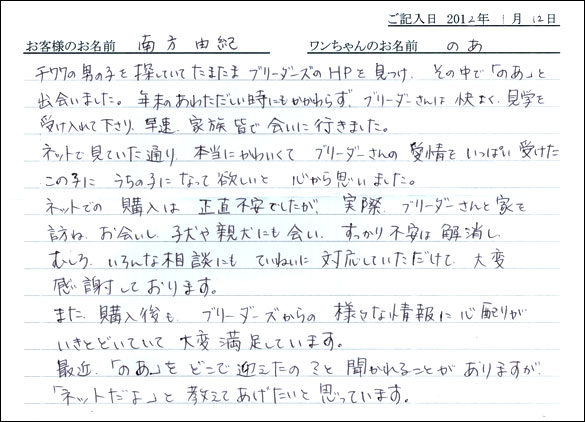 ご記入日 2012年 1月 12日
お客様のお名前 南方 由紀 ワンちゃんのお名前 のあ
チワワの男の子を探していてたまたま ブリーダーズのHPを見つけ、その中で「のあ」と
出会いました。年末のあわただしい時にもかかわらず、ブリーダーさんは 快よく、見学を
受け入れて下さり、早速、家族皆で会いに行きました。
ネットで見ていた通り、本当にかわいくて ブリーダーさんの愛情をいっぱい受けた
この子に うちの子になって欲しいと 心から思いました。
ネットでの 購入は 正直不安でしたが、実際、ブリーダーさんと家を
訪ね、お会いし、子犬や親犬にも会い、すっかり不安は解消し
むしろ、いろんな相談にも ていねいに対応していただけて、大変
感謝しております。
また、購入後も、ブリーダーズからの 様々な情報に心配りが
いきとどいていて 大変満足しています。
最近、「のあ」を どこで迎えたの？と 聞かれることが ありますが、
「ネットだよ」と 教えてあげたいと思っています。